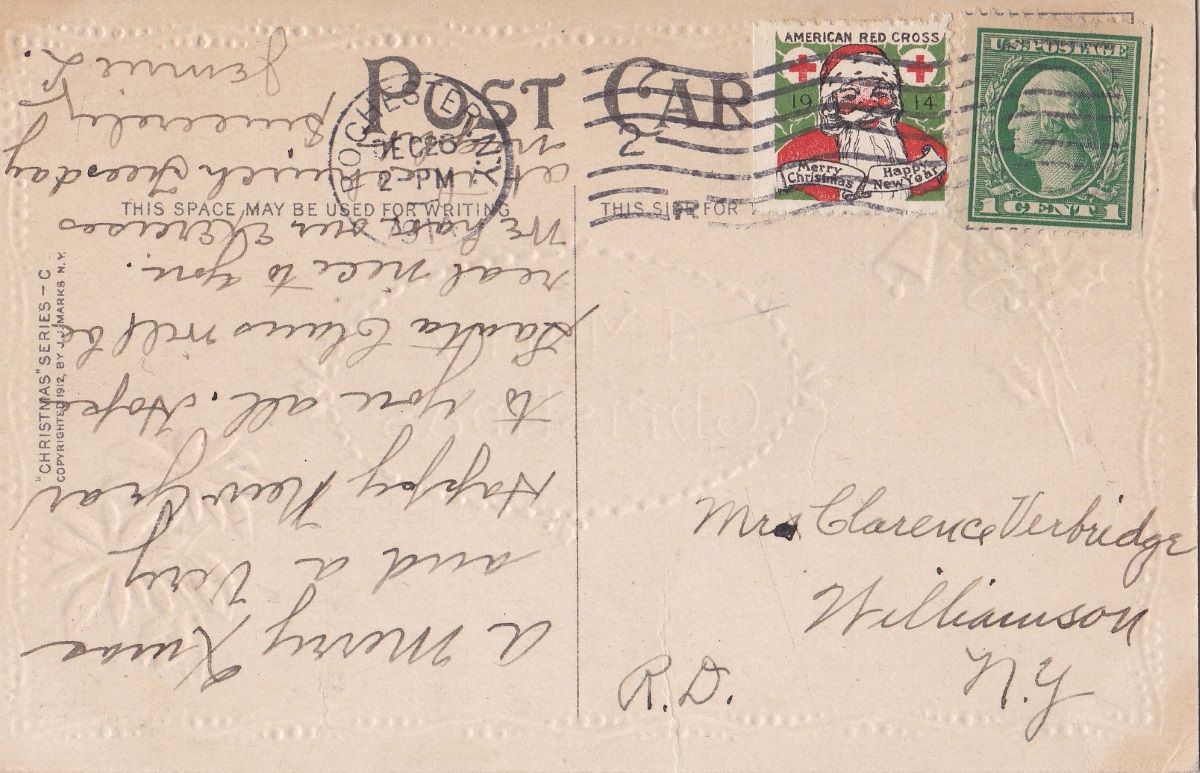 POST CAR
AMERICAN RED CROSS
19 14
Merry Christmas
Happy New Year
U.S. POSTAGE
1 CENT 1
ROCHESTER N.Y.
DEC 23
2 PM
THIS SPACE MAY BE USED FOR WRITING
THIS SI FOR
"CHRISTMAS" SERIES – C
COPYRIGHTED 1912, BY J.J. MARKS N.Y.
A Merry Xmas
and a Very
Happy New Year
to you all. Hope
Santa Claus will be
real nice to you.
We have our Exercises
at church Tuesday
Sincerely
Jennie L.
Mrs Clarence Verbridge
Williamson
N.Y
R.D.